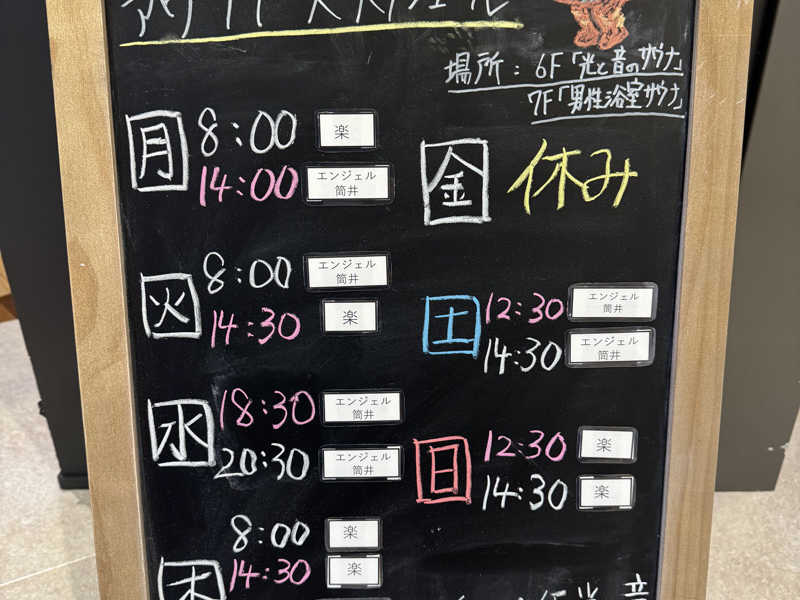 場所：6F「光と音のサウナ」
7F「男性浴室サウナ」
月 8:00 楽
14:00 エンジェル
筒井
火 8:00 エンジェル
筒井
14:30 楽
水 18:30 エンジェル
筒井
20:30 エンジェル
筒井
木 8:00 楽
14:30 楽
金 休み
土 12:30 エンジェル
筒井
14:30 エンジェル
筒井
日 12:30 楽
14:30 楽